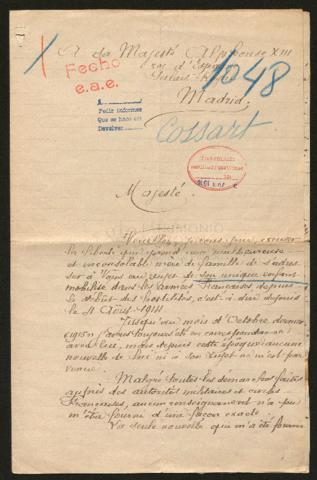 A Sa Majesté Alphonse XIII
roi d'Espagne
Palais Royal
Madrid
Fecho
e.a.e.
1048
Pedir informes
Que se hace en
Devolver
Cossart
Majesté.
Veuillez, je vous prie, excuser
la liberté que prend une malheureuse
et inconsolable mère de famille de s'adres
ser à Vous au sujet de son unique enfant
mobilisé dans les armées françaises depuis
le début des hostilités, c'est à dire depuis
le 4 Août 1914.
Jusqu'au mois d'Octobre dernier
j'avais toujours été en correspondance
avec lui, mais depuis cette époque aucune
nouvelle de lui ni à son sujet ne m'est par
venue.
Malgré toutes les démarches faites
auprès des autorités militaires et civiles
Françaises, aucun renseignement n'a pu
m'être fourni d'une façon exacte.
La seule nouvelle qui m'a été fournie